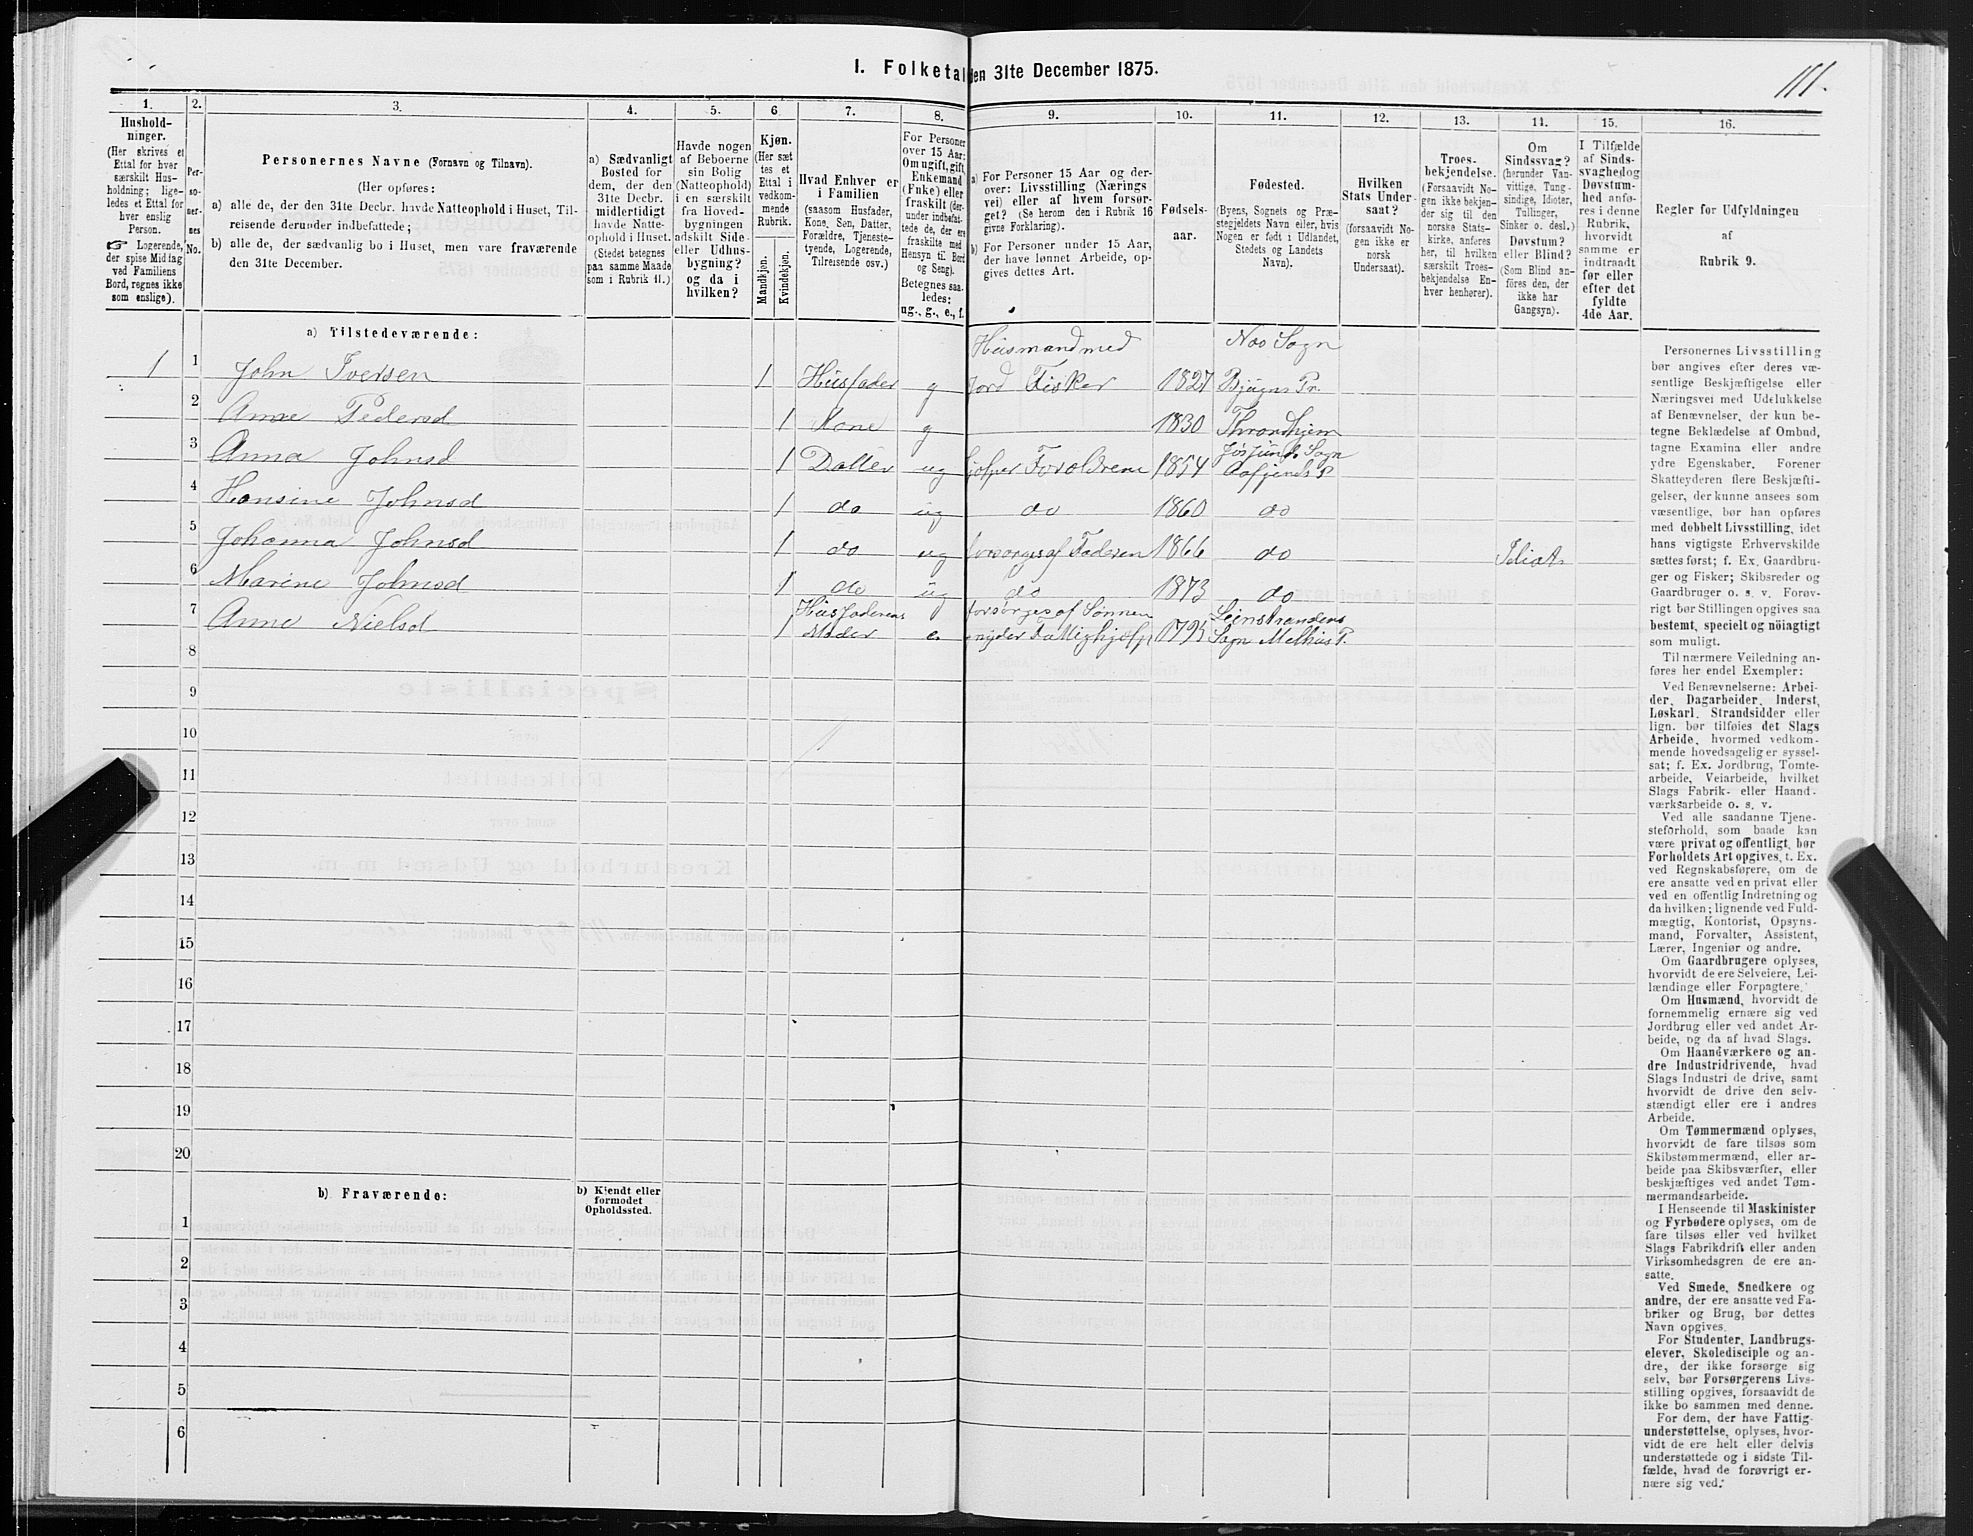 I. Folketal den 31te December 1875.
111.
1. 2. 3. 4. 5. 6. 7. 8. 9. 10. 11. 12. 13. 14. 15. 16.
Hushold-
ninger.
(Her skrives et
Ettal for hver
særskilt Hus-
holdning; lige-
ledes et Ettal for
hver enslig
Person.
☞ Logerende,
der spise Middag
ved Familiens
Bord, regnes ikke
som enslige).
Per-
so-
ner-
nes
No.
Personernes Navne (Fornavn og Tilnavn).
(Her opføres:
a) alle de, der den 31te Decbr. havde Natteophold i Huset, Til-
reisende derunder indbefattede;
b) alle de, der sædvanlig bo i Huset, men vare fraværende
den 31te December.
a) Sædvanligt
Bosted for
dem, der den
31te Decbr.
midlertidigt
havde Natte-
ophold i Huset.
(Stedet betegnes
paa samme Maade
som i Rubrik 11.)
Havde nogen
af Beboerne
sin Bolig
(Natteophold)
i en særskilt
fra Hoved-
bygningen
adskilt Side-
eller Udhus-
bygning?
og da i
hvilken?
Kjøn.
(Her sæt
tes et
Ettal i
vedkom-
mende
Rubrik.
Mandkjøn.
Kvindekjøn.
Hvad Enhver er
i Familien
(saasom Husfader,
Kone, Søn, Datter,
Forældre, Tjeneste-
tyende, Logerende,
Tilreisende osv.)
For Personer
over 15 Aar:
Om ugift, gift,
Enkemand
(Enke) eller
fraskilt (der-
under indbefat-
tede de, der ere
fraskilte med
Hensyn til Bord
og Seng).
Betegnes saa-
ledes:
ug., g., e., f.
a) For Personer 15 Aar og der-
over: Livsstilling (Nærings
vei) eller af hvem forsør-
get? (Se herom den i Rubrik 16
givne Forklaring).
b) For Personer under 15 Aar,
der have lønnet Arbeide, op-
gives dettes Art.
Fødsels-
aar.
Fødested.
(Byens, Sognets og Præ-
stegjeldets Navn eller, hvis
Nogen er født i Udlandet,
Stedets og Landets
Navn).
Hvilken
Stats Under-
saat?
(forsaavidt No-
gen ikke er
norsk
Undersaat).
Troes-
bekjendelse.
(Forsaavidt No-
gen ikke bekjen-
der sig til den
norske Stats-
kirke, anføres
her, til hvilken
særskilt Troes-
bekjendelse En-
hver henhører).
Om
Sindssvag?
(herunder Van-
vittige, Tung-
sindige, Idioter,
Tullinger,
Sinker o. desl.)
Døvstum?
eller Blind?
(Som Blind an-
føres den, der
ikke har
Gangsyn).
I Tilfælde
af Sinds-
svaghed og
Døvstum-
hed anfø-
res i denne
Rubrik,
hvorvidt
samme er
indtraadt
før eller
efter det
fyldte
4de Aar.
Regler for Udfyldningen
af
Rubrik 9.
a) Tilstedeværende:
Husmand med Nes Sogn
1 1 John Iversen 1 Husfader g Jord Fisker 1827 Bjugn Pr.
2 Anne Pedersd 1 Kone g 1830 Throndhjem
Jøssund Sogn
3 Anna Johnsd 1 Datter ug hjelper Foreldrene 1854 Aafjords P
4 Hansine Johnsd 1 do ug do 1860 do
5 Johanna Johnsd 1 do ug forsørges af Faderen 1866 do Idiot
6 Marine Johnsd 1 do ug do 1873 do
Husfaderens forsørges af Sønnen Leinstrandens
7 Anne Nielsd 1 Moder e nyder Fattighjelp 1795 Sogn Melhus P.
8
9
10
11
12
13
14
15
16
17
18
19
20
b) Fraværende:
b) Kjendt eller
formodet
Opholdssted.
1
2
3
4
5
6
Personernes Livsstilling
bør angives efter deres væ-
sentlige Beskjæftigelse eller
Næringsvei med Udelukkelse
af Benævnelser, der kun be-
tegne Beklædelse af Ombud,
tagne Examina eller andre
ydre Egenskaber. Forener
Skatteyderen flere Beskjæfti-
gelser, der kunne ansees som
væsentlige, bør han opføres
med dobbelt Livsstilling, idet
hans vigtigste Erhvervskilde
sættes først; f. Ex. Gaardbru-
ger og Fisker; Skibsreder og
Gaardbruger o. s. v. Forøv-
rigt bør Stillingen opgives saa
bestemt, specielt og nöiagtigt
som muligt.
Til nærmere Veiledning an-
føres her endel Exempler:
Ved Benævnelserne: Arbei-
der, Dagarbeider, Inderst,
Løskarl, Strandsidder eller
lign. bør tilføies det Slags
Arbeide, hvormed vedkom-
mende hovedsagelig er syssel-
sat; f. Ex. Jordbrug, Tomte-
arbeide, Veiarbeide, hvilket
Slags Fabrik- eller Haand-
værksarbeide o. s. v.
Ved alle saadanne Tjene-
steforhold, som baade kan
være privat og offentligt, bør
Forholdets Art opgives, t. Ex.
ved Regnskabsførere, om de
ere ansatte ved en privat eller
ved en offentlig Indretning og
da hvilken; lignende ved Fuld-
mægtig, Kontorist, Opsyns-
mand, Forvalter, Assistent,
Lærer, Ingeniør og andre.
Om Gaardbrugere oplyses,
hvorvidt de ere Selveiere, Lei-
lændinge eller Forpagtere.
Om Husmænd, hvorvidt de
fornemmelig ernære sig ved
Jordbrug eller ved andet Ar-
beide, og da af hvad Slags.
Om Haandværkere og an-
dre Industridrivende, hvad
Slags Industri de drive, samt
hvorvidt de drive den selv-
stændigt eller ere i andres
Arbeide.
Om Tømmermænd oplyses,
hvorvidt de fare tilsøs som
Skibstømmermænd, eller ar-
beide paa Skibsværfter, eller
beskjæftiges ved andet Tøm-
mermandsarbeide.
I Henseende til Maskinister
og Fyrbødere oplyses, om de
fare tilsøs eller ved hvilket
Slags Fabrikdrift eller anden
Virksomhedsgren de ere an-
satte.
Ved Smede, Snedkere og
andre, der ere ansatte ved Fa-
briker og Brug, bør dettes
Navn opgives.
For Studenter, Landbrugs-
elever, Skoledisciple og an-
dre, der ikke forsørge sig
selv, bør Forsørgerens Livs-
stilling opgives, forsaavidt de
ikke bo sammen med denne.
For dem, der have Fattig-
understøttelse, oplyses, hvor-
vidt de ere helt eller delvis
understøttede og i sidste Til-
fælde, hvad de forøvrigt er-
nære sig ved.